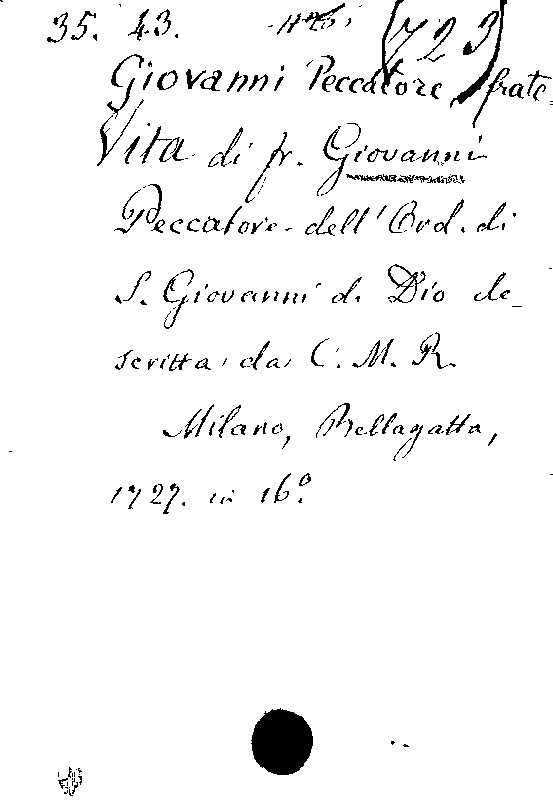 35. 43. (723)
Giovanni Peccatore, frate.
Vita di fr. Giovanni
Peccatore dell' Ord. di
S. Giovanni di Dio de-
scritta da C. M. R.
Milano, Bellagatta,
1727. in 16º.